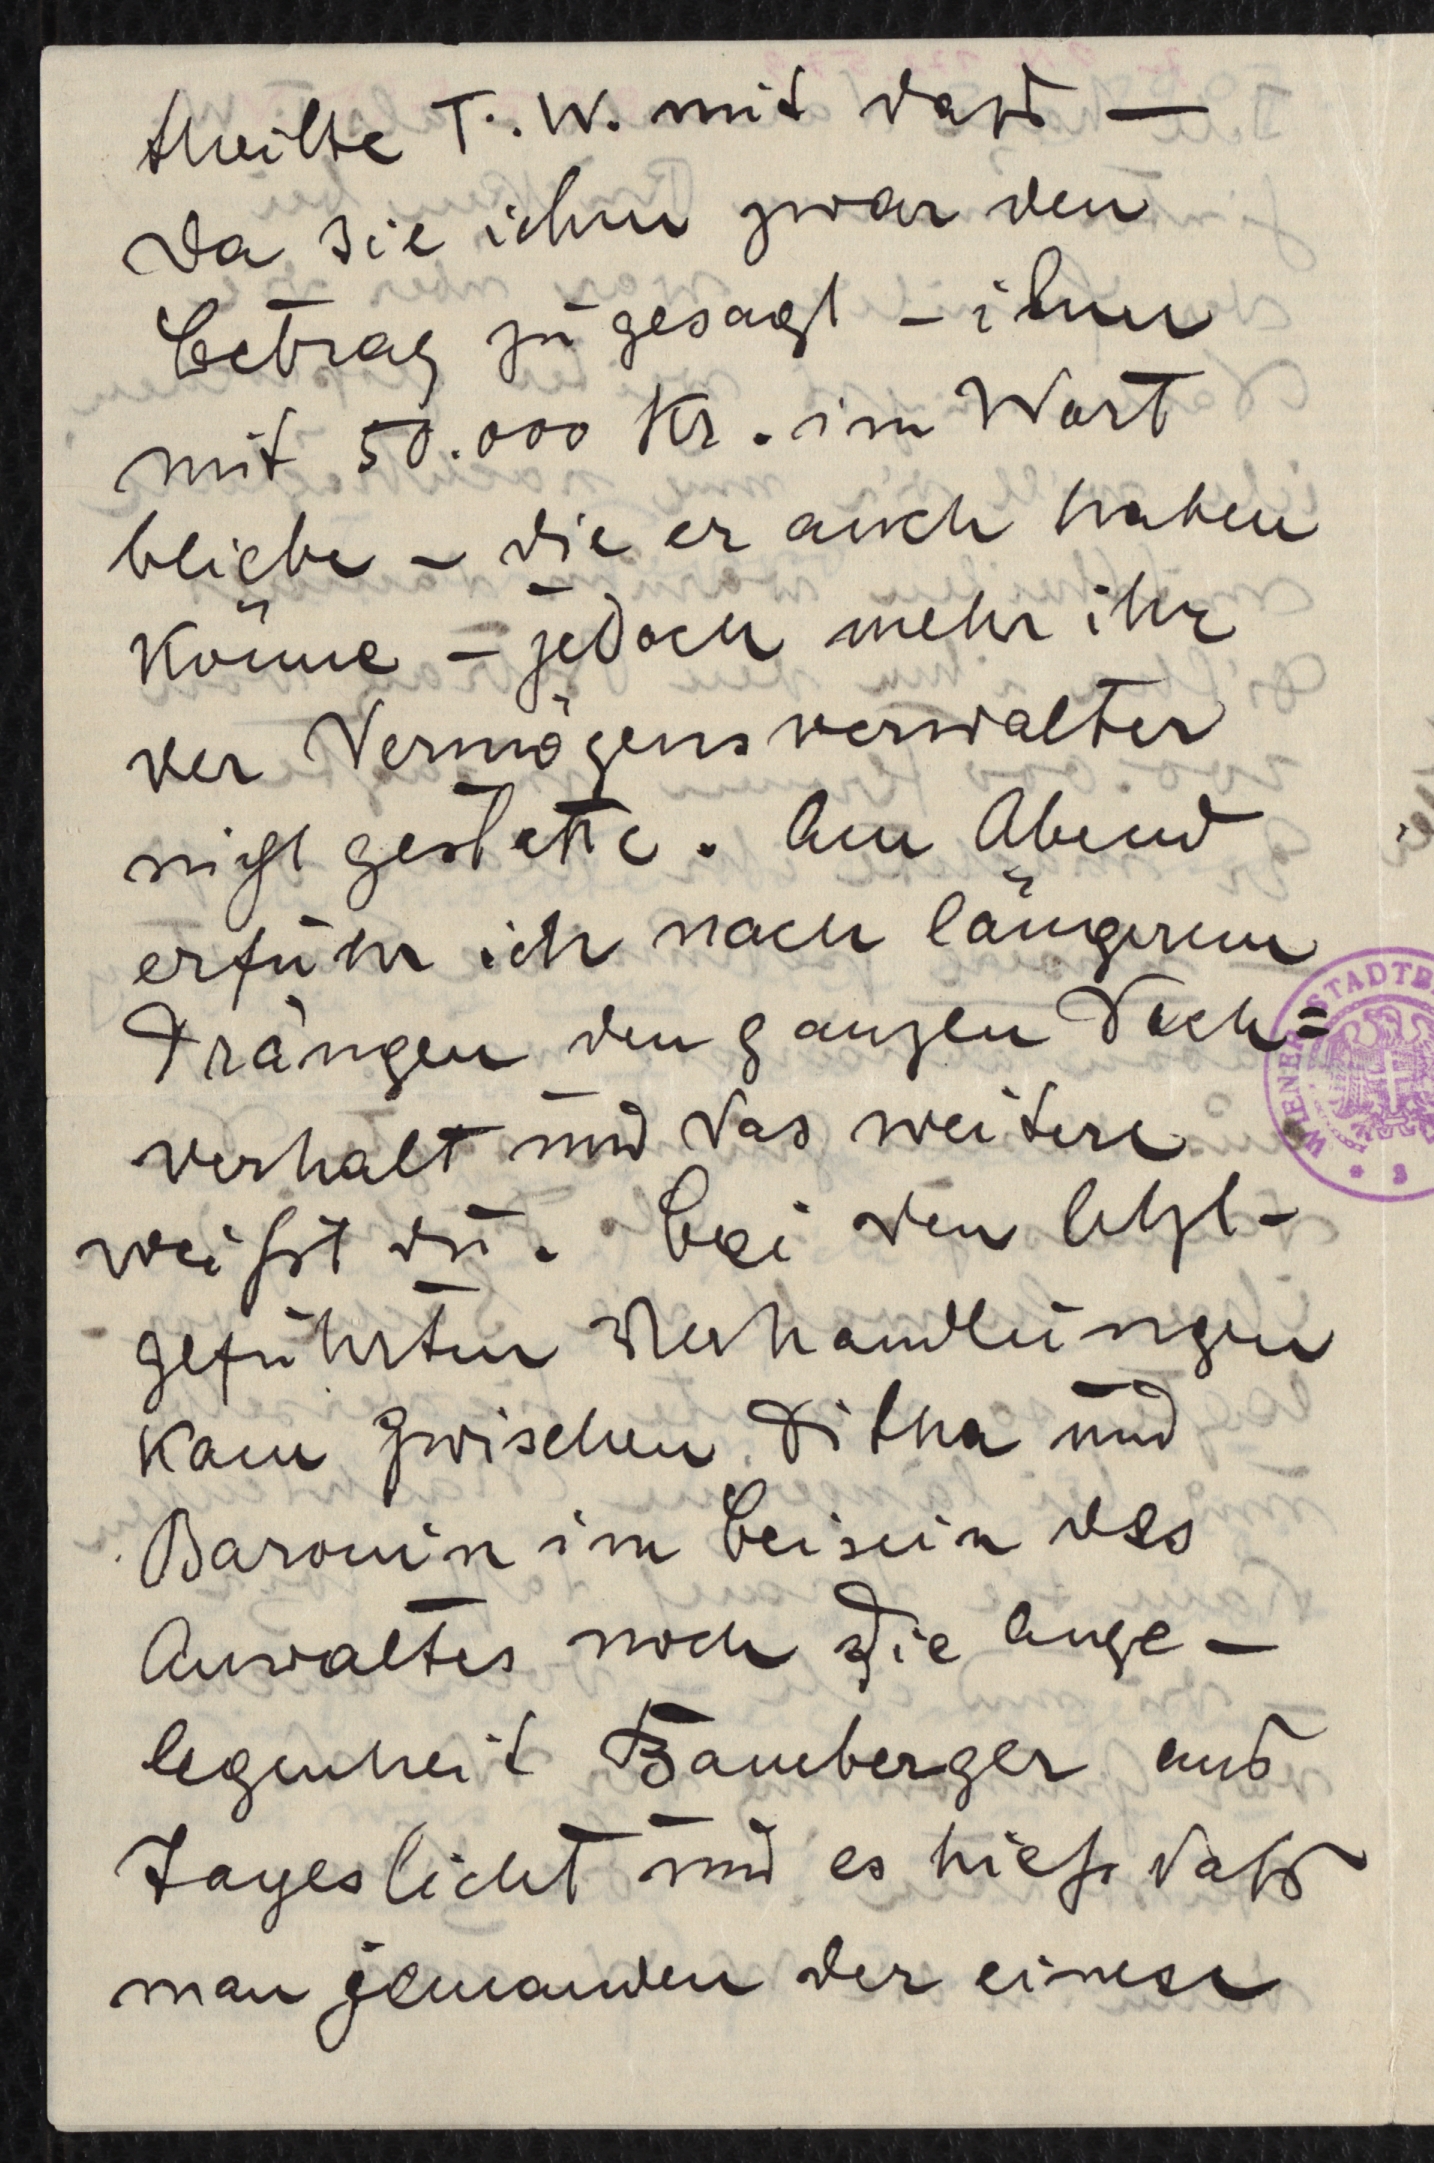 theilte T. W. mit daß —
da sie ihm zwar den
Betrag zugesagt – ihm
mit 50.000 Kr. im Wort
bliebe – die er auch haben
könne – jedoch mehr ihr
der Vermögensverwalter
nicht gestatte. Am Abend
erfuhr ich nach längerem
Drängen den ganzen Sach=
verhalt und das weitere
weißt du. Bei den letzt-
geführten Verhandlungen
kam zwischen Ditha und
Baronin im Beisein des
Anwaltes noch die Ange-
legenheit Bamberger ans
Tageslicht und es hieß daß
man jemanden der einen
WIENER STADTB